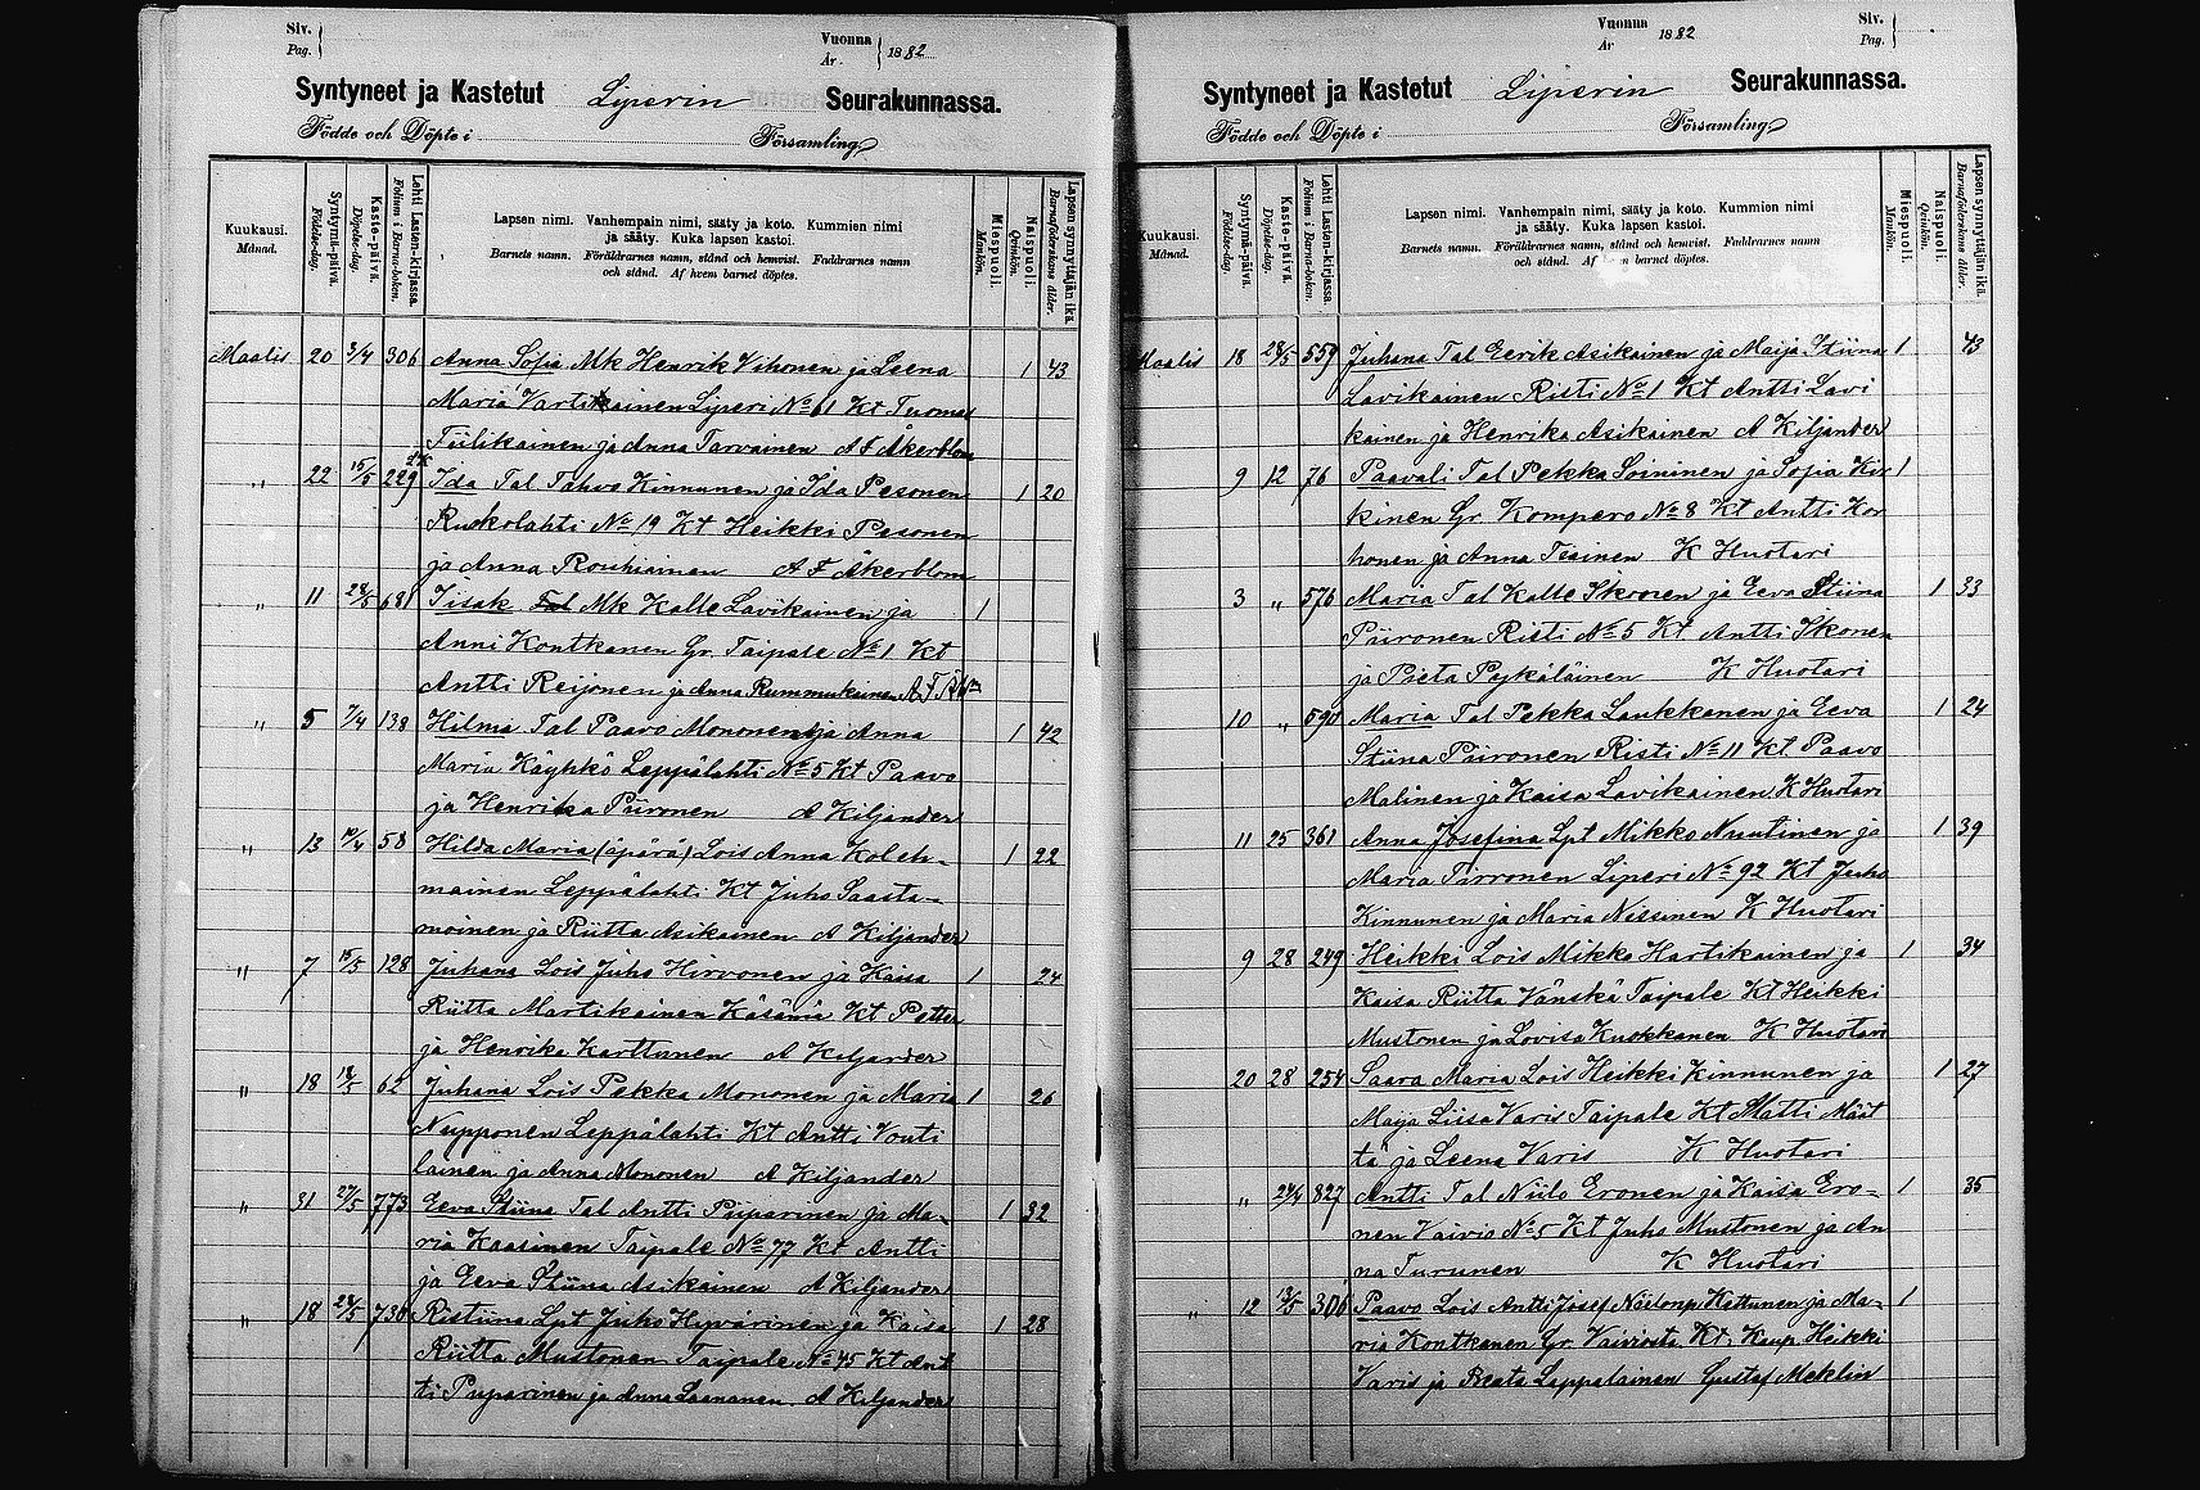 Siv.
Pag.
Vuonna
År.
1882
Syntyneet ja Kastetut Liperin Seurakunnassa.
Födde och Döpte i Församling.
Kuukausi.
Månad.
Syntymä-päivä.
Födelse-dag.
Kaste-päivä.
Döpelse-dag.
Lehti Lasten-kirjassa.
Folium i Barna-boken.
Lapsen nimi. Vanhempain nimi, sääty ja koto. Kummien nimi
ja sääty. Kuka lapsen kastoi.
Barnets namn. Föräldrarnes namn, stånd och hemvist. Faddrarnes namn
och stånd. Af hvem barnet döptes.
Miespuoli.
Mankön.
Naispuoli.
Qvinkön.
Lapsen synnyttäjän ikä.
Barnaföderskans ålder.
Maalis 20 3/4 306 Anna Sofia Mk Henrik Vihonen ja Leena 1 43
Maria Vartiainen Liperi No 61 Kt Tuomas
Tiilikainen ja Anna Tarvainen A F Åkerblom
" 22 15/5 229 Ida Tal. Tahvo Kinnunen ja Ida Pesonen 1 20
Ruokolahti No 19 Kt Heikki Pesonen
ja Anna Rouhiainen A F Åkerblom
" 11 28/5 681 Iisak Mk Kalle Lavikainen ja 1
Anni Kontkanen Gr. Taipale No 1 Kt
Antti Reijonen ja Anna Rummukainen A F Åblm
" 5 7/4 138 Hilma Tal Paavo Mononen ja Anna 1 42
Maria Käyhkö Leppälahti No 5 Kt Paavo
ja Henrika Piironen A Kiljander
" 13 10/4 58 Hilda Maria (äpärä) Lois Anna Koleh- 1 22
mainen Leppälahti Kt Juho Saasta-
moinen ja Riitta Asikainen A Kiljander
" 7 15/5 128 Juhana Lois Juho Hirvonen ja Kaisa 1 24
Riitta Martikainen Käsämä Kt Petter
ja Henrika Karttunen A Kiljander
" 18 18/5 62 Juhana Lois Pekka Mononen ja Maria 1 26
Nupponen Leppälahti Kt Antti Vouti
lainen ja Anna Mononen A Kiljander
" 31 27/5 773 Eeva Stiina Tal Antti Piiparinen ja Ma- 1 32
ria Kaasinen Taipale No 77 Kt Antti
ja Eeva Stiina Asikainen A Kiljander
" 18 28/5 730 Ristiina Lpt Juho Hyvärinen ja Kaisa 1 28
Riitta Mustonen Taipale No 45 Kt Ant
ti Piiparinen ja Anna Laananen. A Kiljander
Vuonna
År
1882
Siv.
Pag.
Syntyneet ja Kastetut Liperin Seurakunnassa.
Födde och Döpte i Församling.
Kuukausi.
Månad.
Syntymä-päivä.
Födelse-dag.
Kaste-päivä.
Döpelse-dag.
Lehti Lasten-kirjassa.
Folium i Barna-boken.
Lapsen nimi. Vanhempain nimi, sääty ja koto. Kummien nimi
ja sääty. Kuka lapsen kastoi.
Barnets namn. Föräldrarnes namn, stånd och hemvist. Faddrarnes namn
och stånd. Af hvem barnet döptes.
Miespuoli.
Mankön.
Naispuoli.
Qvinkön.
Lapsen synnyttäjän ikä.
Barnaföderskans ålder.
Maalis 18 28/5 559 Juhana Tal Eerik Asikainen ja Maija Stiina 1 43
Lavikainen Risti No 1 Kt Antti Lavi
kainen ja Henrika Asikainen A Kiljander
9 12 76 Paavali Tal Pekka Soininen ja Sofia Kir 1
kinen Gr. Kompero No 8 Kt Antti Kor
honen ja Anna Tiainen K Huotari
3 " 576 Maria Tal Kalle Ikonen ja Eeva Stiina 1 33
Piironen Risti No 5 Kt Antti Ikonen
ja Pieta Pykäläinen K Huotari
10 " 590 Maria Tal Pekka Laukkanen ja Eeva 1 24
Stiina Piironen Risti No 11 Kt Paavo
Malinen ja Kaisa Lavikainen K Huotari
11 25 361 Anna Josefina Lpt Mikko Nuutinen ja 1 39
Maria Tirronen Liperi No 92 Kt Juho
Kinnunen ja Maria Nissinen K Huotari
9 28 249 Heikki Lois Mikko Hartikainen ja 1 34
Kaisa Riitta Vänskä Taipale Kt Heikki
Mustonen ja Lovisa Kuokkanen K Huotari
20 28 254 Saara Maria Lois Heikki Kinnunen ja 1 27
Maija Liisa Varis Taipale Kt Matti Määt
tä ja Leena Varis K Huotari
" 24/4 827 Antti Tal Niilo Eronen ja Kaisa Ero- 1 35
nen Vaivio No 5 Kt Juho Mustonen ja An
na Turunen K Huotari
" 12 13/5 306 Paavo Lois Antti Josef Niilonp. Kettunen ja Ma- 1
ria Kontkanen Gr. Kt. Kaup. Heikki
Varis ja Beata Lappalainen Gustaf Meklin